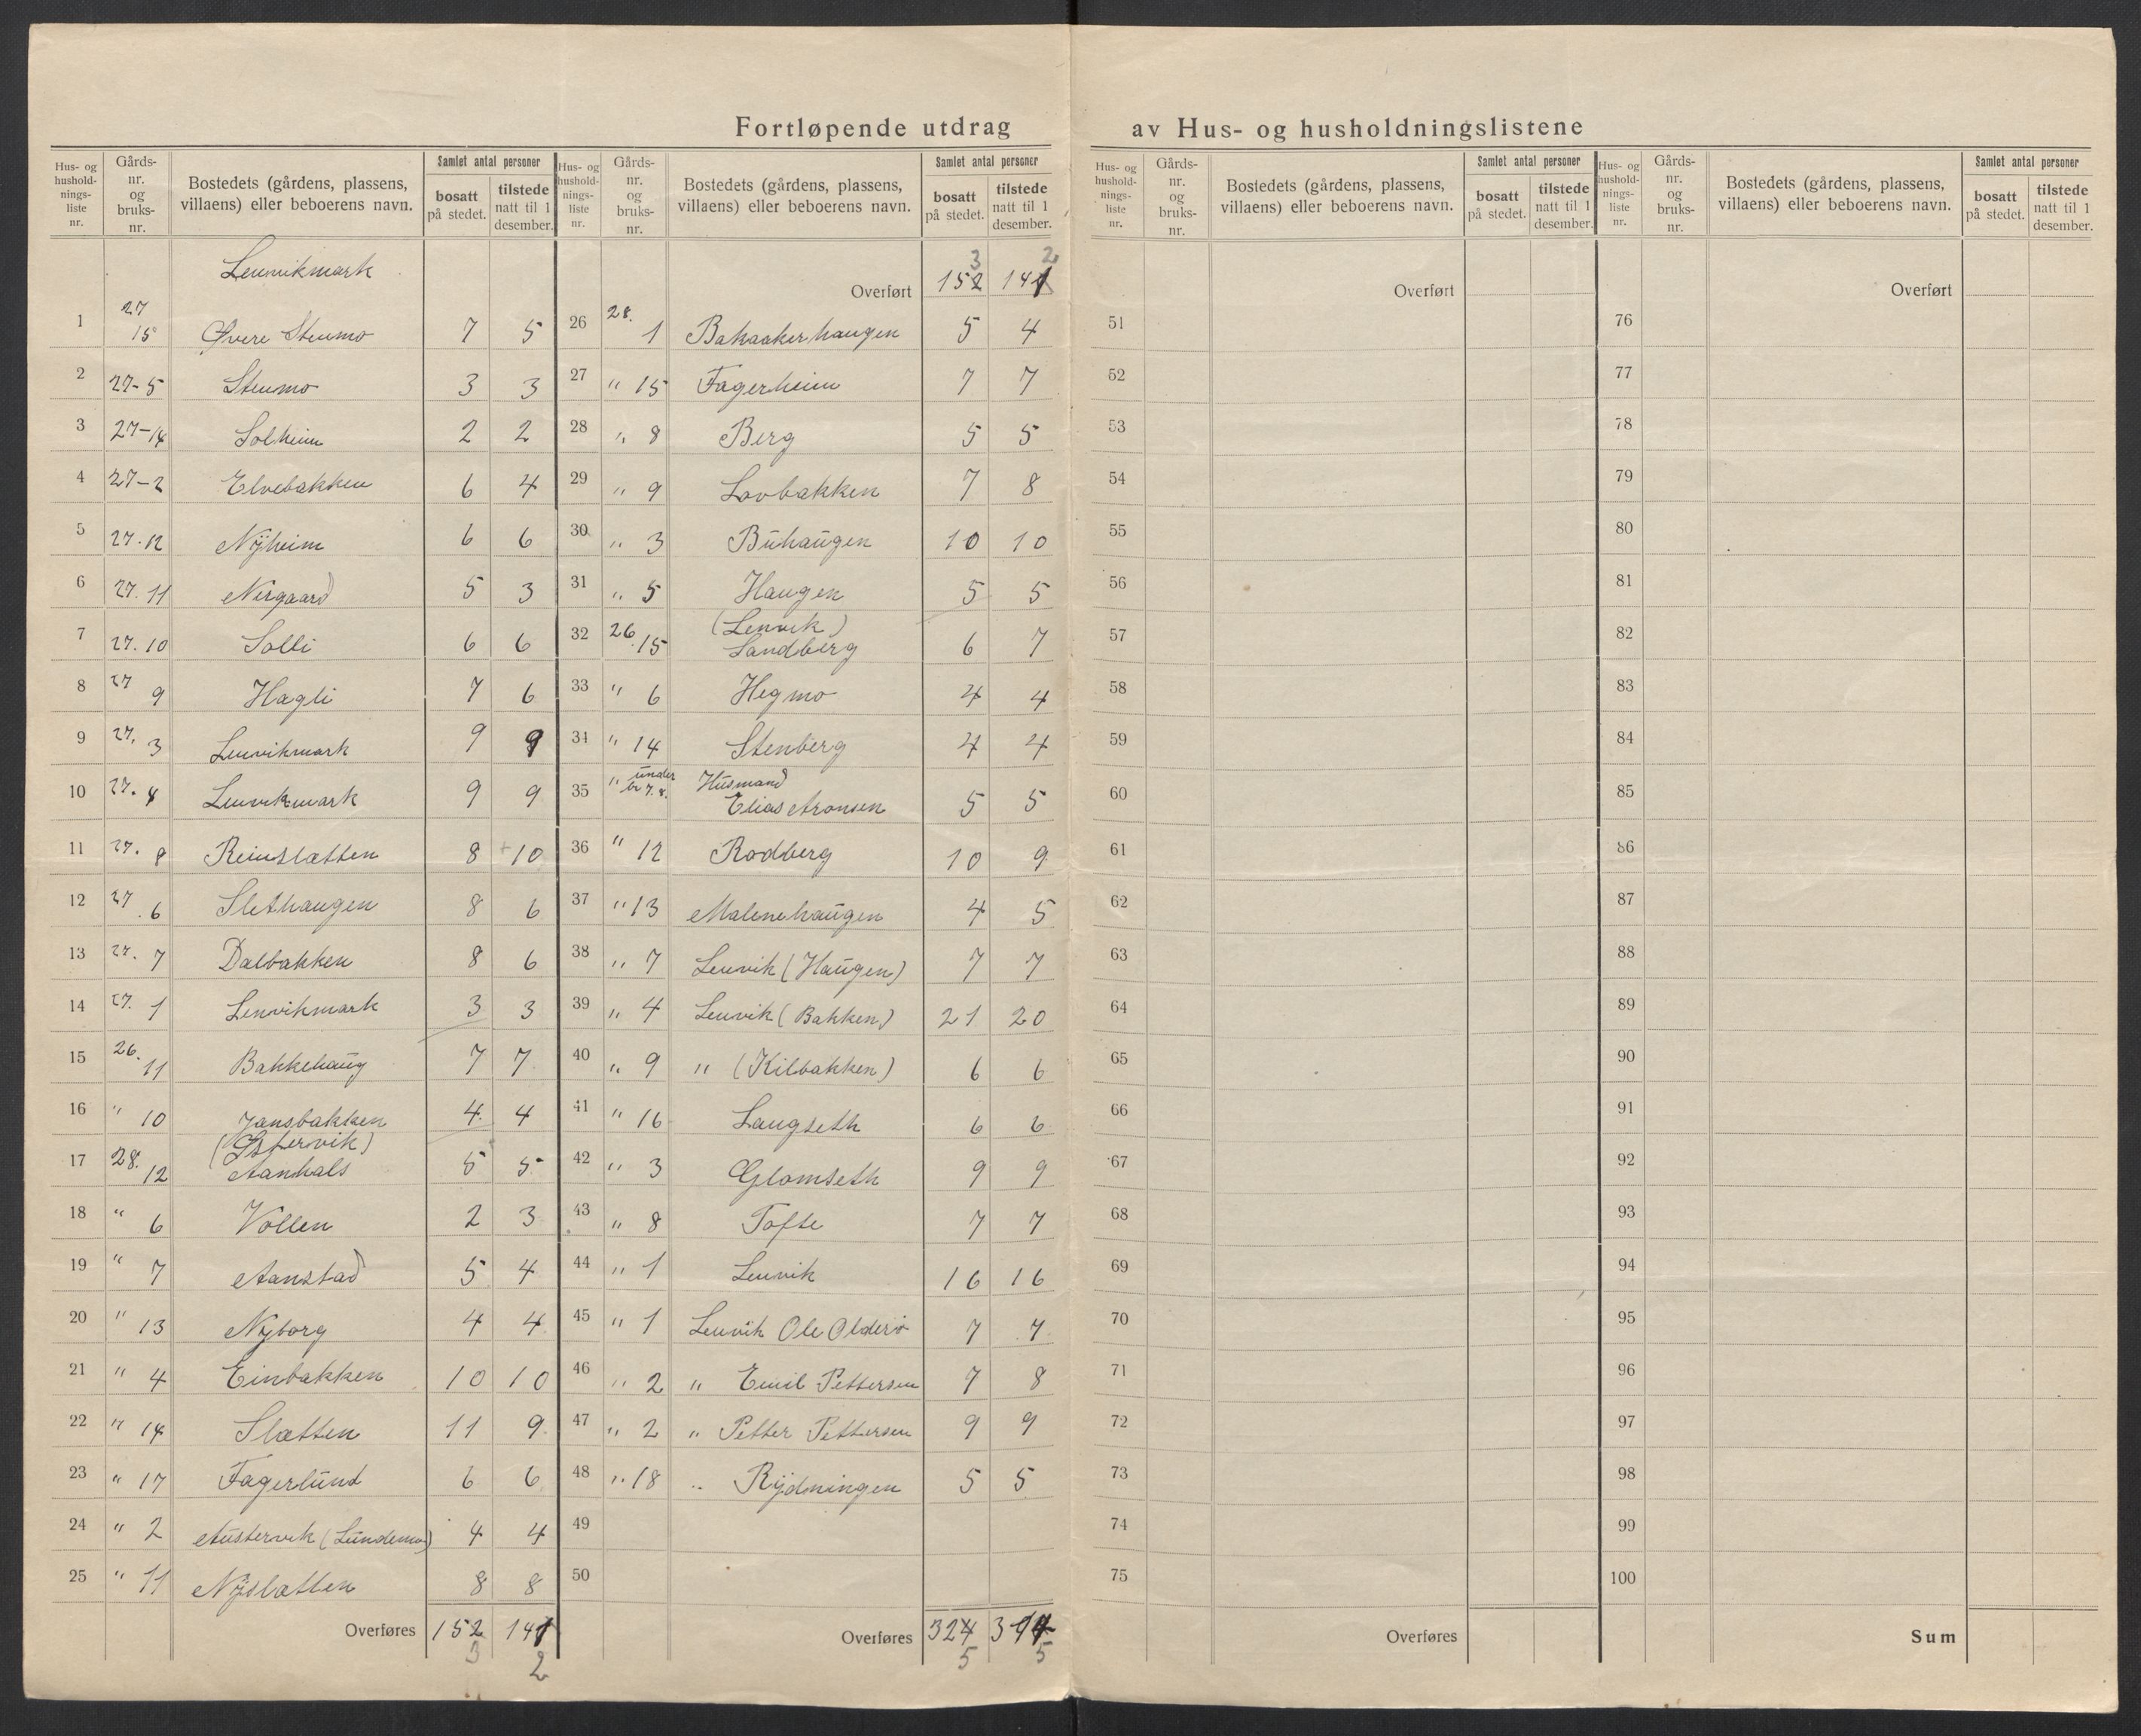 Fortløpende utdrag av Hus- og husholdningslistene
Hus- og husholdningsliste nr. | Gårds- nr. og bruks- nr. | Bostedets (gårdens, plassens, villaens) eller beboerens navn. | Samlet antal personer | bosatt på stedet. | tilstede natt til 1 desember.
Lenvikmark
1 27 15 Øvere Stenmo 7 5
2 27-5 Stenmo 3 3
3 27-14 Solheim 2 2
4 27-2 Elvebakken 6 4
5 27.12 Nÿheim 6 6
6 27.11 Nergaard 5 3
7 27.10 Solli 6 6
8 27 9 Hagli 7 6
9 27. 3 Lenvikmark 9 9
10 27. 4 Lenvikmark 9 9
11 27. 8 Reinslatten 8 10
12 27. 6 Slethaugen 8 6
13 27. 7 Dalbakken 8 6
14 27. 1 Lenvikmark 3 3
15 26. 11 Bakkehaug 7 7
16 " 10 Jansbakken 4 4
(Østervik)
17 28. 12 Aanhals 5 5
18 " 6 Vollen 2 3
19 " 7 Aanstad 5 4
20 " 13 Nyborg 4 4
21 " 4 Einbakken 10 10
22 " 14 Slatten 11 9
23 " 17 Fagerlund 6 6
24 " 2 Austervik (Lundemo) 4 4
25 " 11 Nÿslatten 8 8
Overføres 152 141
3 2
Hus- og husholdningsliste nr. | Gårds- nr. og bruks- nr. | Bostedets (gårdens, plassens, villaens) eller beboerens navn. | Samlet antal personer | bosatt på stedet. | tilstede natt til 1 desember.
3 2
Overført 152 141
26 28. 1 Bakaakerhaugen 5 4
27 " 15 Fagerheim 7 7
28 " 8 Berg 5 5
29 " 9 Lovbakken 7 8
30 " 3 Buhaugen 10 10
31 " 5 Haugen 5 5
(Lenvik)
32 26.15 Sandberg 6 7
33 " 6 Hegmo 4 4
34 " 14 Stenberg 4 4
35 " under Husmand
Elias Aronsen 5 5
36 " 12 Rodberg 10 9
37 " 13 Malenehaugen 4 5
38 " 7 Lenvik (Haugen) 7 7
39 " 4 Lenvik (Bakken) 21 20
40 " 9 " (Kilbakken) 6 6
41 " 16 Langseth 6 6
42 " 3 Glomseth 9 9
43 " 8 Tofte 7 7
44 " 1 Lenvik 16 16
45 " 1 Lenvik Ole Olderø 7 7
46 " 2 " Emil Pettersen 7 8
47 " 2 " Petter Pettersen 9 9
48 " 18 " Rÿdningen 5 5
49
50
Overføres 324
5 5
Hus- og husholdningsliste nr. | Gårds- nr. og bruks- nr. | Bostedets (gårdens, plassens, villaens) eller beboerens navn. | Samlet antal personer | bosatt på stedet. | tilstede natt til 1 desember.
Overført
51
52
53
54
55
56
57
58
59
60
61
62
63
64
65
66
67
68
69
70
71
72
73
74
75
Overføres
Hus- og husholdningsliste nr. | Gårds- nr. og bruks- nr. | Bostedets (gårdens, plassens, villaens) eller beboerens navn. | Samlet antal personer | bosatt på stedet. | tilstede natt til 1 desember.
Overført
76
77
78
79
80
81
82
83
84
85
86
87
88
89
90
91
92
93
94
95
96
97
98
99
100
Sum